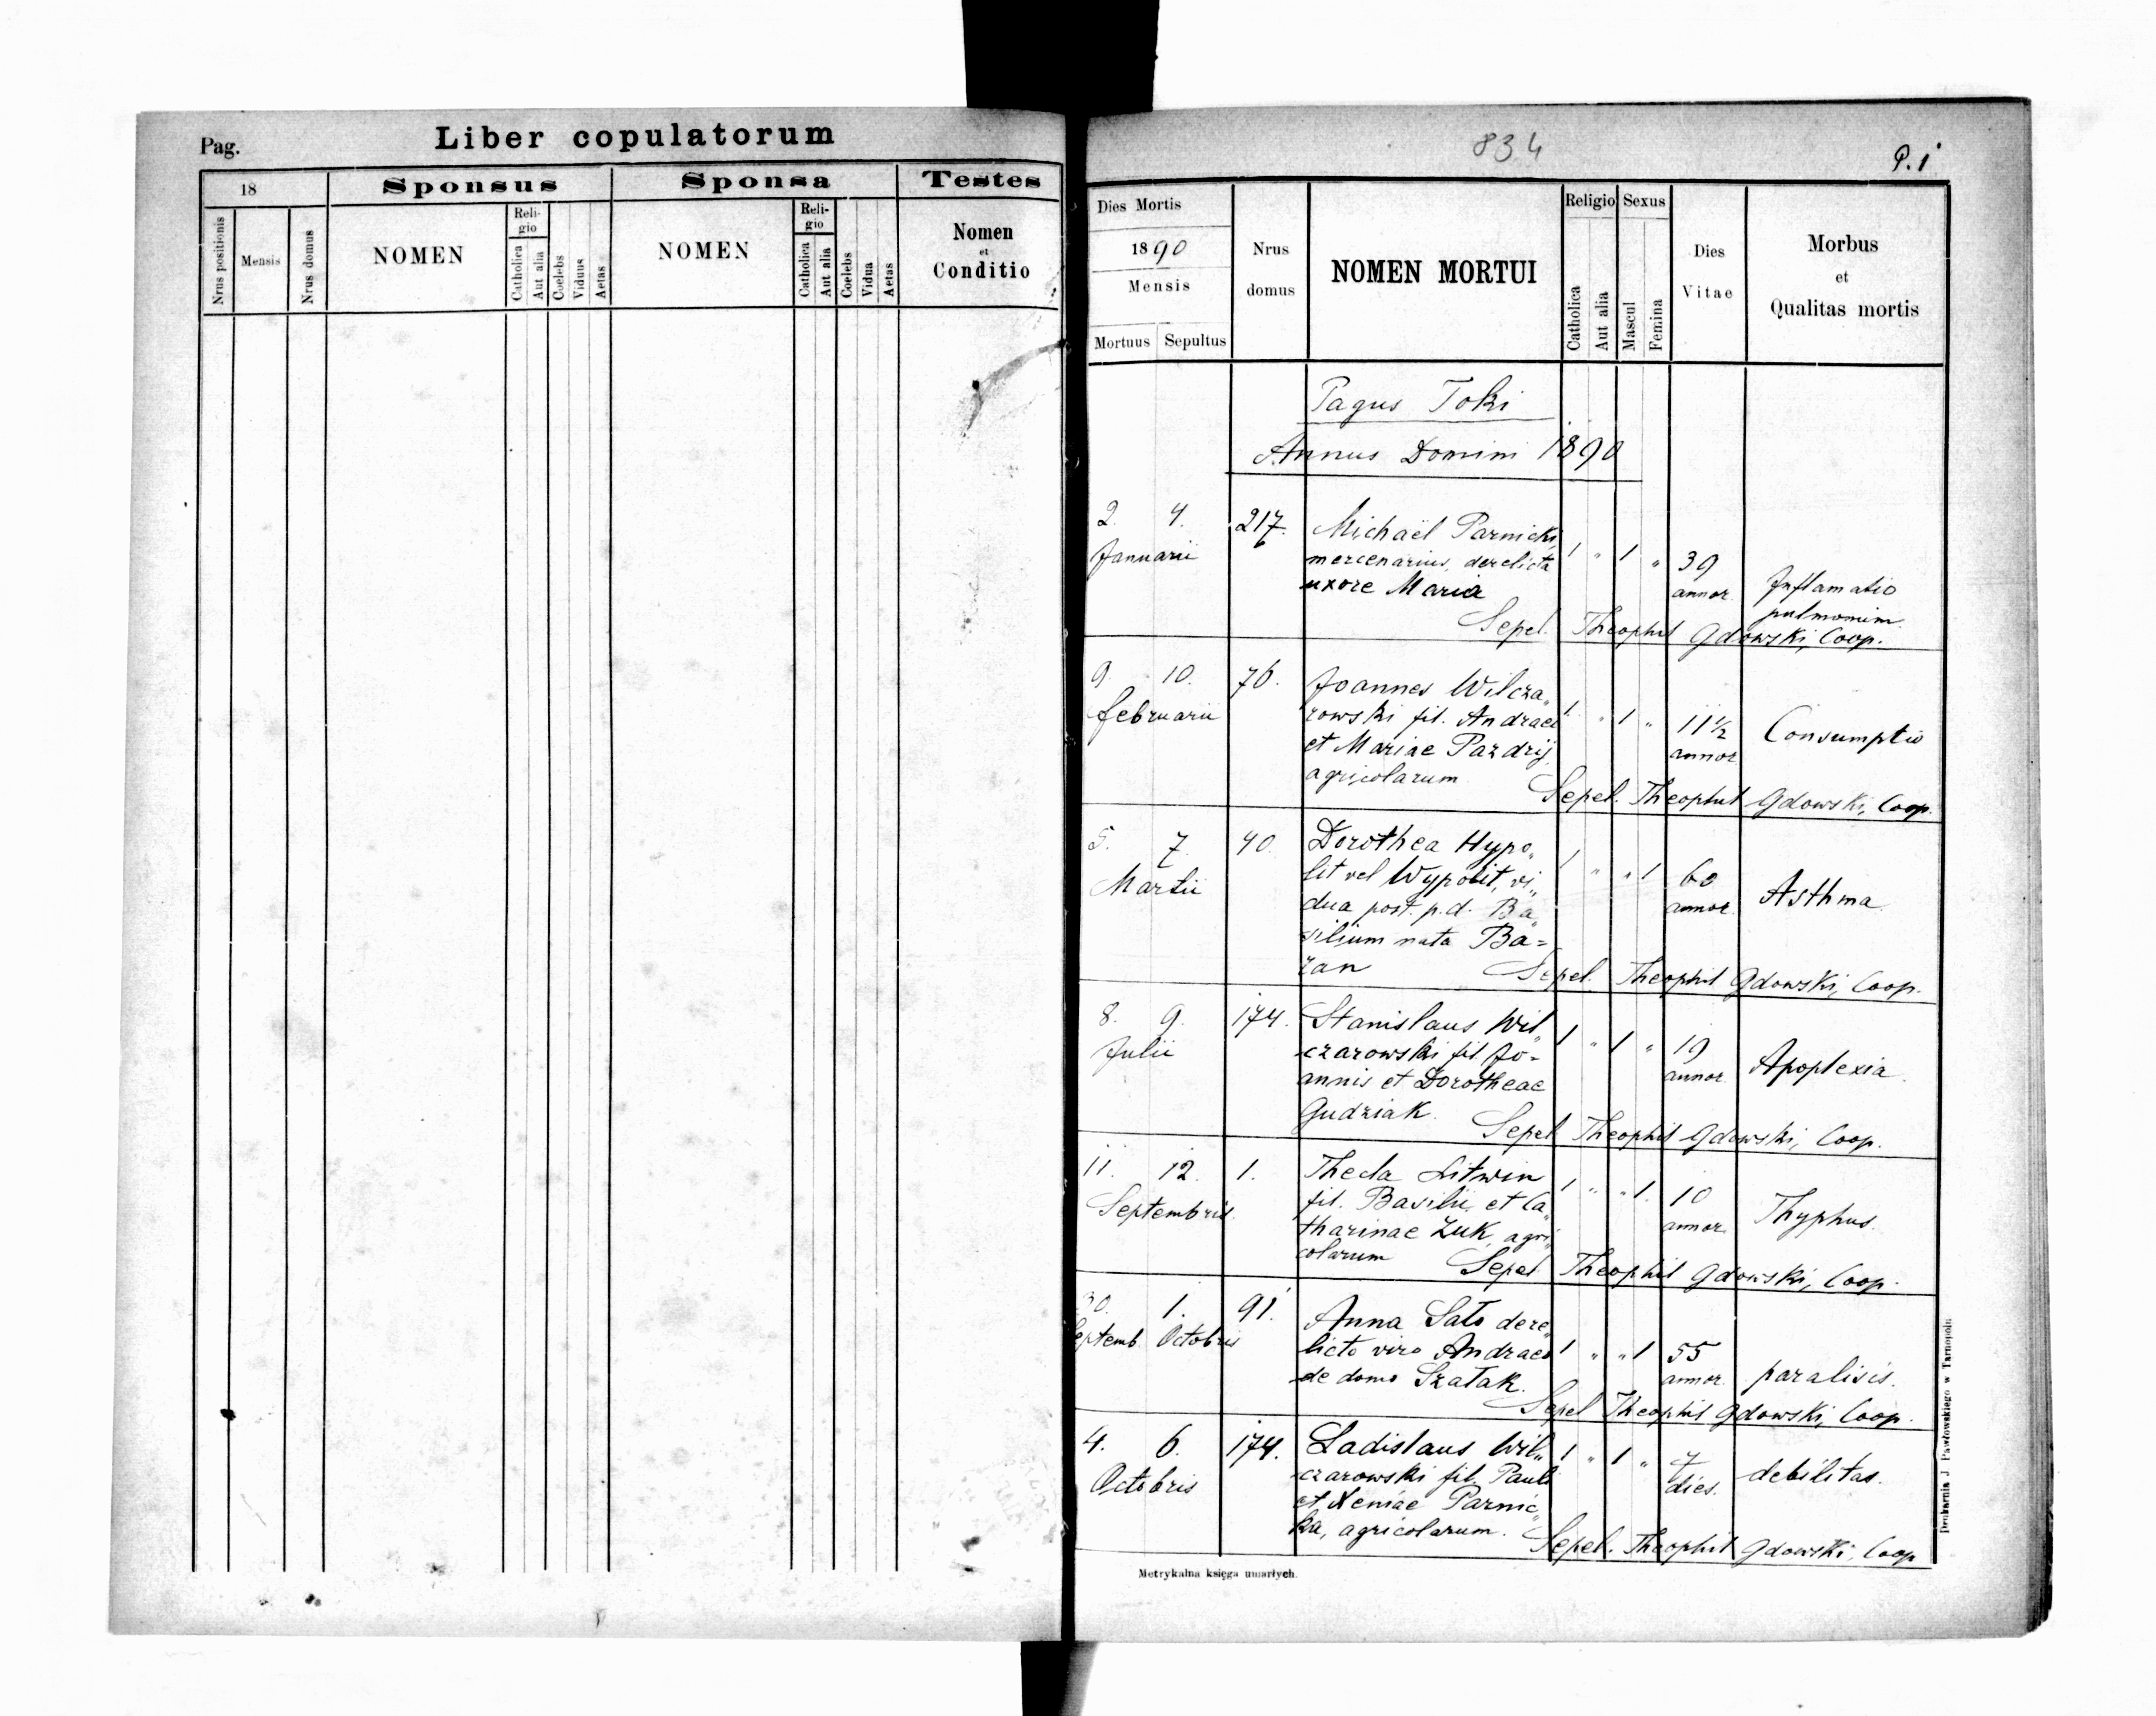 Pag.
Liber copulatorum
18
Sponsus
Sponsa
Testes
Nrus positionis
Mensis
Nrus domus
NOMEN
Reli-
gio
Catholica
Aut alia
Coelebs
Viduus
Aetas
NOMEN
Reli-
gio
Catholica
Aut alia
Coelebs
Vidua
Aetas
Nomen
et
Conditio
834
P. 1
Dies Mortis
1890
Mensis
Mortuus Sepultus
Nrus
domus
NOMEN MORTUI
Religio
Catholica
Aut alia
Sexus
Mascul
Femina
Dies
Vitae
Morbus
et
Qualitas mortis
Pagus Toki
Annus Domini 1890
2. 4. 217. Michaël Parnicki,
Januarii mercenarius, derelicta 1 " 1 " 39
uxore Maria annor. Inflamatio
pulmonim.
Sepel. Theophil Gdowski, Coop.
9. 10. 76. Joannes Wilcza„
februarii rowski fil. Andraei 1 " 1 " 11 1/2 Consumptio
et Mariae Pazdrij, annor
agricolarum
Sepel. Theophil Gdowski, Coop.
5. 7. 40. Dorothea Hypo„
Martii lit vel Wypolit, vi„ 1 " " 1 60 Asthma
dua post. p.d. Ba„ annor.
silium nata Ba=
zan
Sepel. Theophil Gdowski, Coop.
8. 9. 174. Stanislaus Wil„
Julii czarowski fil. Jo- 1 " 1 " 19 Apoplexia
annis et Dorotheae annor.
Gudziak.
Sepel Theophil Gdowski, Coop.
11. 12. 1. Thecla Litwin
Septembris. fil. Basilii, et Ca„ 1 " " 1. 10 Thyphus.
tharinae Zuk, agri„ annor.
colarum
Sepel Theophil Gdowski, Coop.
30. 1. 91. Anna Sato dere„
Septemb Octobris licto viro Andraeo 1 " " 1 55 paralisis.
de domo Szatak. annor.
Sepel Theophil Gdowski, Coop.
4. 6. 174. Ladislaus Wil„
Octobris czarowski fil. Pauli 1 " 1 " 7 debilitas.
et Xeniae Parnic„ dies.
ka, agricolarum.
Sepel. Theophil Gdowski, Coop
Metrykalna księga umarłych.
Drukarnia J. Pawłowskiego w Tarnopolu